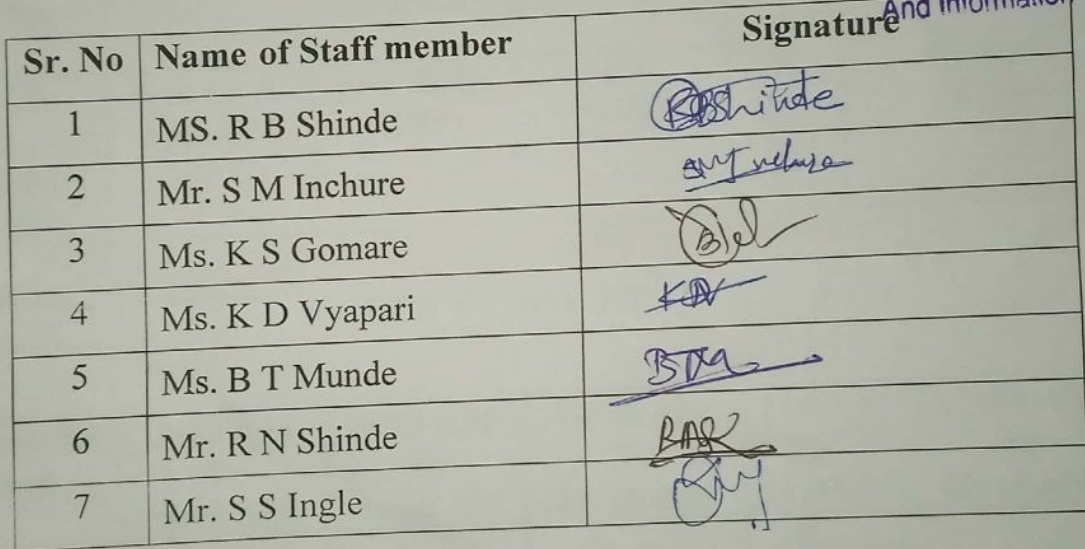 And Information
Sr. No Name of Staff member Signature
1 MS. R B Shinde RBShinde
2 Mr. S M Inchure SMInchure
3 Ms. K S Gomare
4 Ms. K D Vyapari
5 Ms. B T Munde BTM
6 Mr. R N Shinde
7 Mr. S S Ingle